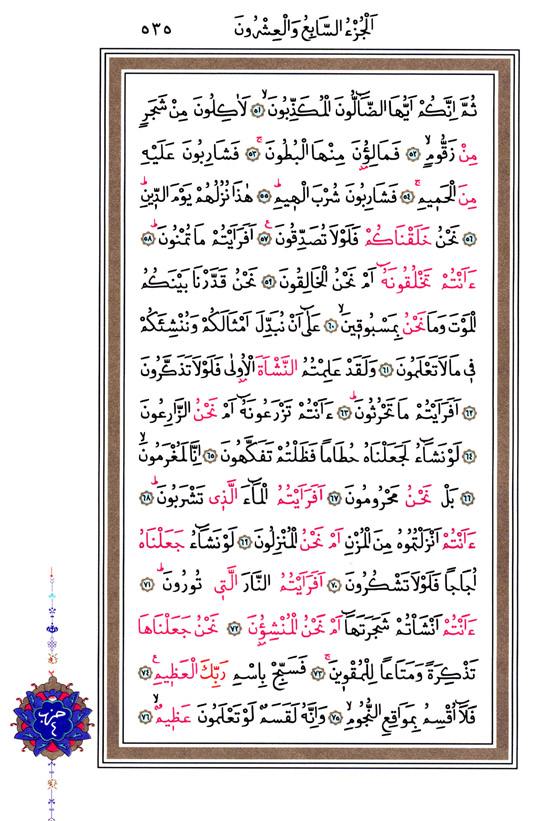 اَلْجُزْءُ السَّابِعُ وَالْعِشْرُونَ
٥٣٥
ثُمَّ اِنَّكُمْ اَيُّهَا الضَّٓالُّونَ الْمُكَذِّبُونَۙ ﴿٥١﴾ لَاٰكِلُونَ مِنْ شَجَرٍ
مِنْ زَقُّومٍۙ ﴿٥٢﴾ فَمَالِؤُ۫نَ مِنْهَا الْبُطُونَۚ ﴿٥٣﴾ فَشَارِبُونَ عَلَيْهِ
مِنَ الْحَم۪يمِۚ ﴿٥٤﴾ فَشَارِبُونَ شُرْبَ الْه۪يمِۜ ﴿٥٥﴾ هٰذَا نُزُلُهُمْ يَوْمَ الدّ۪ينِۜ
﴿٥٦﴾ نَحْنُ خَلَقْنَاكُمْ فَلَوْلَا تُصَدِّقُونَۚ ﴿٥٧﴾ اَفَرَاَيْتُمْ مَا تُمْنُونَۜ ﴿٥٨﴾
ءَاَنْتُمْ تَخْلُقُونَهُٓ اَمْ نَحْنُ الْخَالِقُونَ ﴿٥٩﴾ نَحْنُ قَدَّرْنَا بَيْنَكُمُ
الْمَوْتَ وَمَا نَحْنُ بِمَسْبُوق۪ينَۙ ﴿٦٠﴾ عَلٰٓى اَنْ نُبَدِّلَ اَمْثَالَكُمْ وَنُنْشِئَكُمْ
ف۪ي مَا لَا تَعْلَمُونَ ﴿٦١﴾ وَلَقَدْ عَلِمْتُمُ النَّشْاَةَ الْاُو۫لٰى فَلَوْلَا تَذَكَّرُونَ
﴿٦٢﴾ اَفَرَاَيْتُمْ مَا تَحْرُثُونَۜ ﴿٦٣﴾ ءَاَنْتُمْ تَزْرَعُونَهُٓ اَمْ نَحْنُ الزَّارِعُونَ
﴿٦٤﴾ لَوْ نَشَٓاءُ لَجَعَلْنَاهُ حُطَاماً فَظَلْتُمْ تَفَكَّهُونَ ﴿٦٥﴾ اِنَّا لَمُغْرَمُونَۙ
﴿٦٦﴾ بَلْ نَحْنُ مَحْرُومُونَ ﴿٦٧﴾ اَفَرَاَيْتُمُ الْمَٓاءَ الَّذ۪ي تَشْرَبُونَۜ ﴿٦٨﴾
ءَاَنْتُمْ اَنْزَلْتُمُوهُ مِنَ الْمُزْنِ اَمْ نَحْنُ الْمُنْزِلُونَ ﴿٦٩﴾ لَوْ نَشَٓاءُ جَعَلْنَاهُ
اُجَاجاً فَلَوْلَا تَشْكُرُونَ ﴿٧٠﴾ اَفَرَاَيْتُمُ النَّارَ الَّت۪ي تُورُونَۜ ﴿٧١﴾
ءَاَنْتُمْ اَنْشَاْتُمْ شَجَرَتَهَٓا اَمْ نَحْنُ الْمُنْشِؤُ۫نَ ﴿٧٢﴾ نَحْنُ جَعَلْنَاهَا
تَذْكِرَةً وَمَتَاعاً لِلْمُقْو۪ينَۚ ﴿٧٣﴾ فَسَبِّحْ بِاسْمِ رَبِّكَ الْعَظ۪يمِ۟ ﴿٧٤﴾
فَلَٓا اُقْسِمُ بِمَوَاقِعِ النُّجُومِۙ ﴿٧٥﴾ وَاِنَّهُ لَقَسَمٌ لَوْ تَعْلَمُونَ عَظ۪يمٌۙ ﴿٧٦﴾
حزب
٤